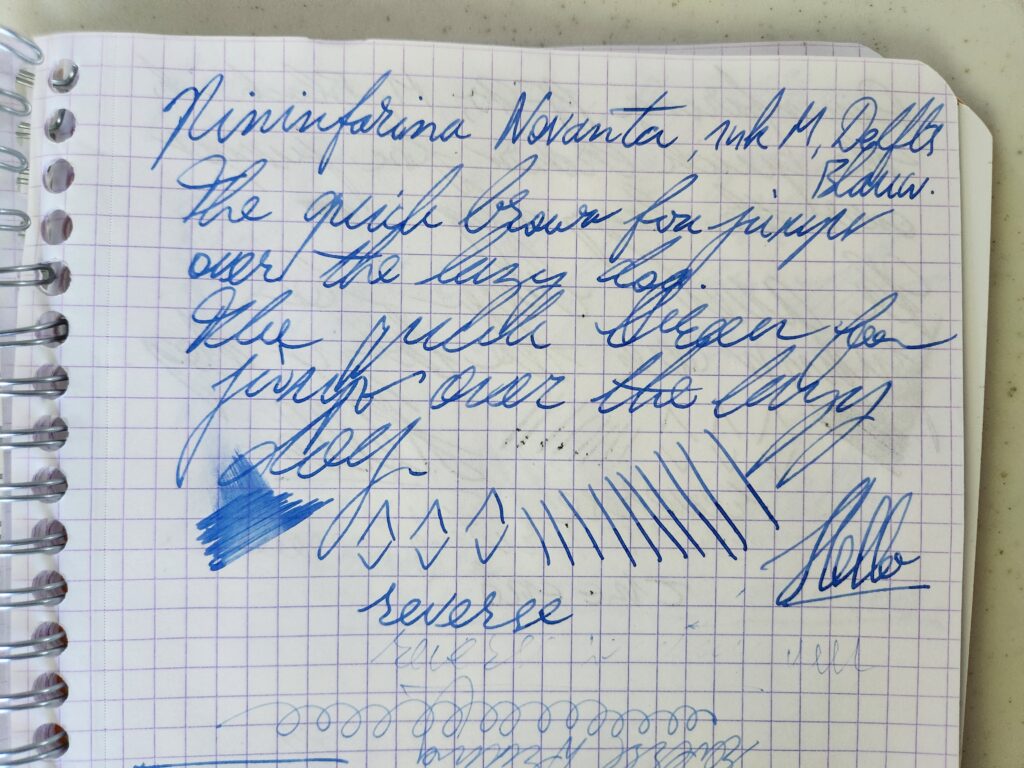 Pininfarina Novanta, ink M, Delfts
Blauw.
The quick brown fox jumps
over the lazy dog.
The quick brown fox
jumps over the lazy
dog.
Hello
reverse